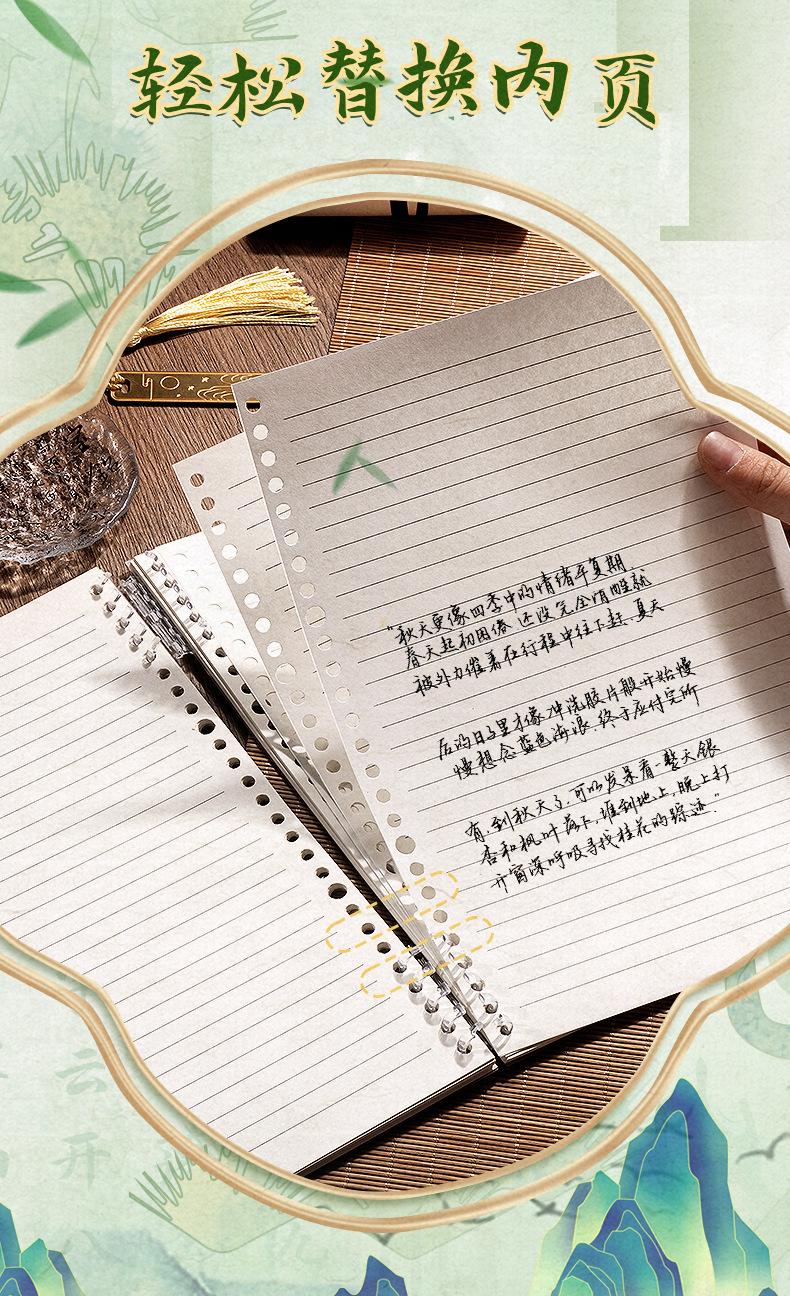 轻松替换内页
"秋天更像四季中的情绪平复期.
春天起初困倦.还没完全清醒就
被外力催着在行程中往下赶.夏天
后的日子里才像冲洗胶片般开始慢
慢想念蓝色海浪.终于应付完所
有.到秋天了.可以发呆看.整天银
杏和枫叶落下.堆到地上.晚上打
开窗深呼吸寻找桂花的踪迹."
云
开